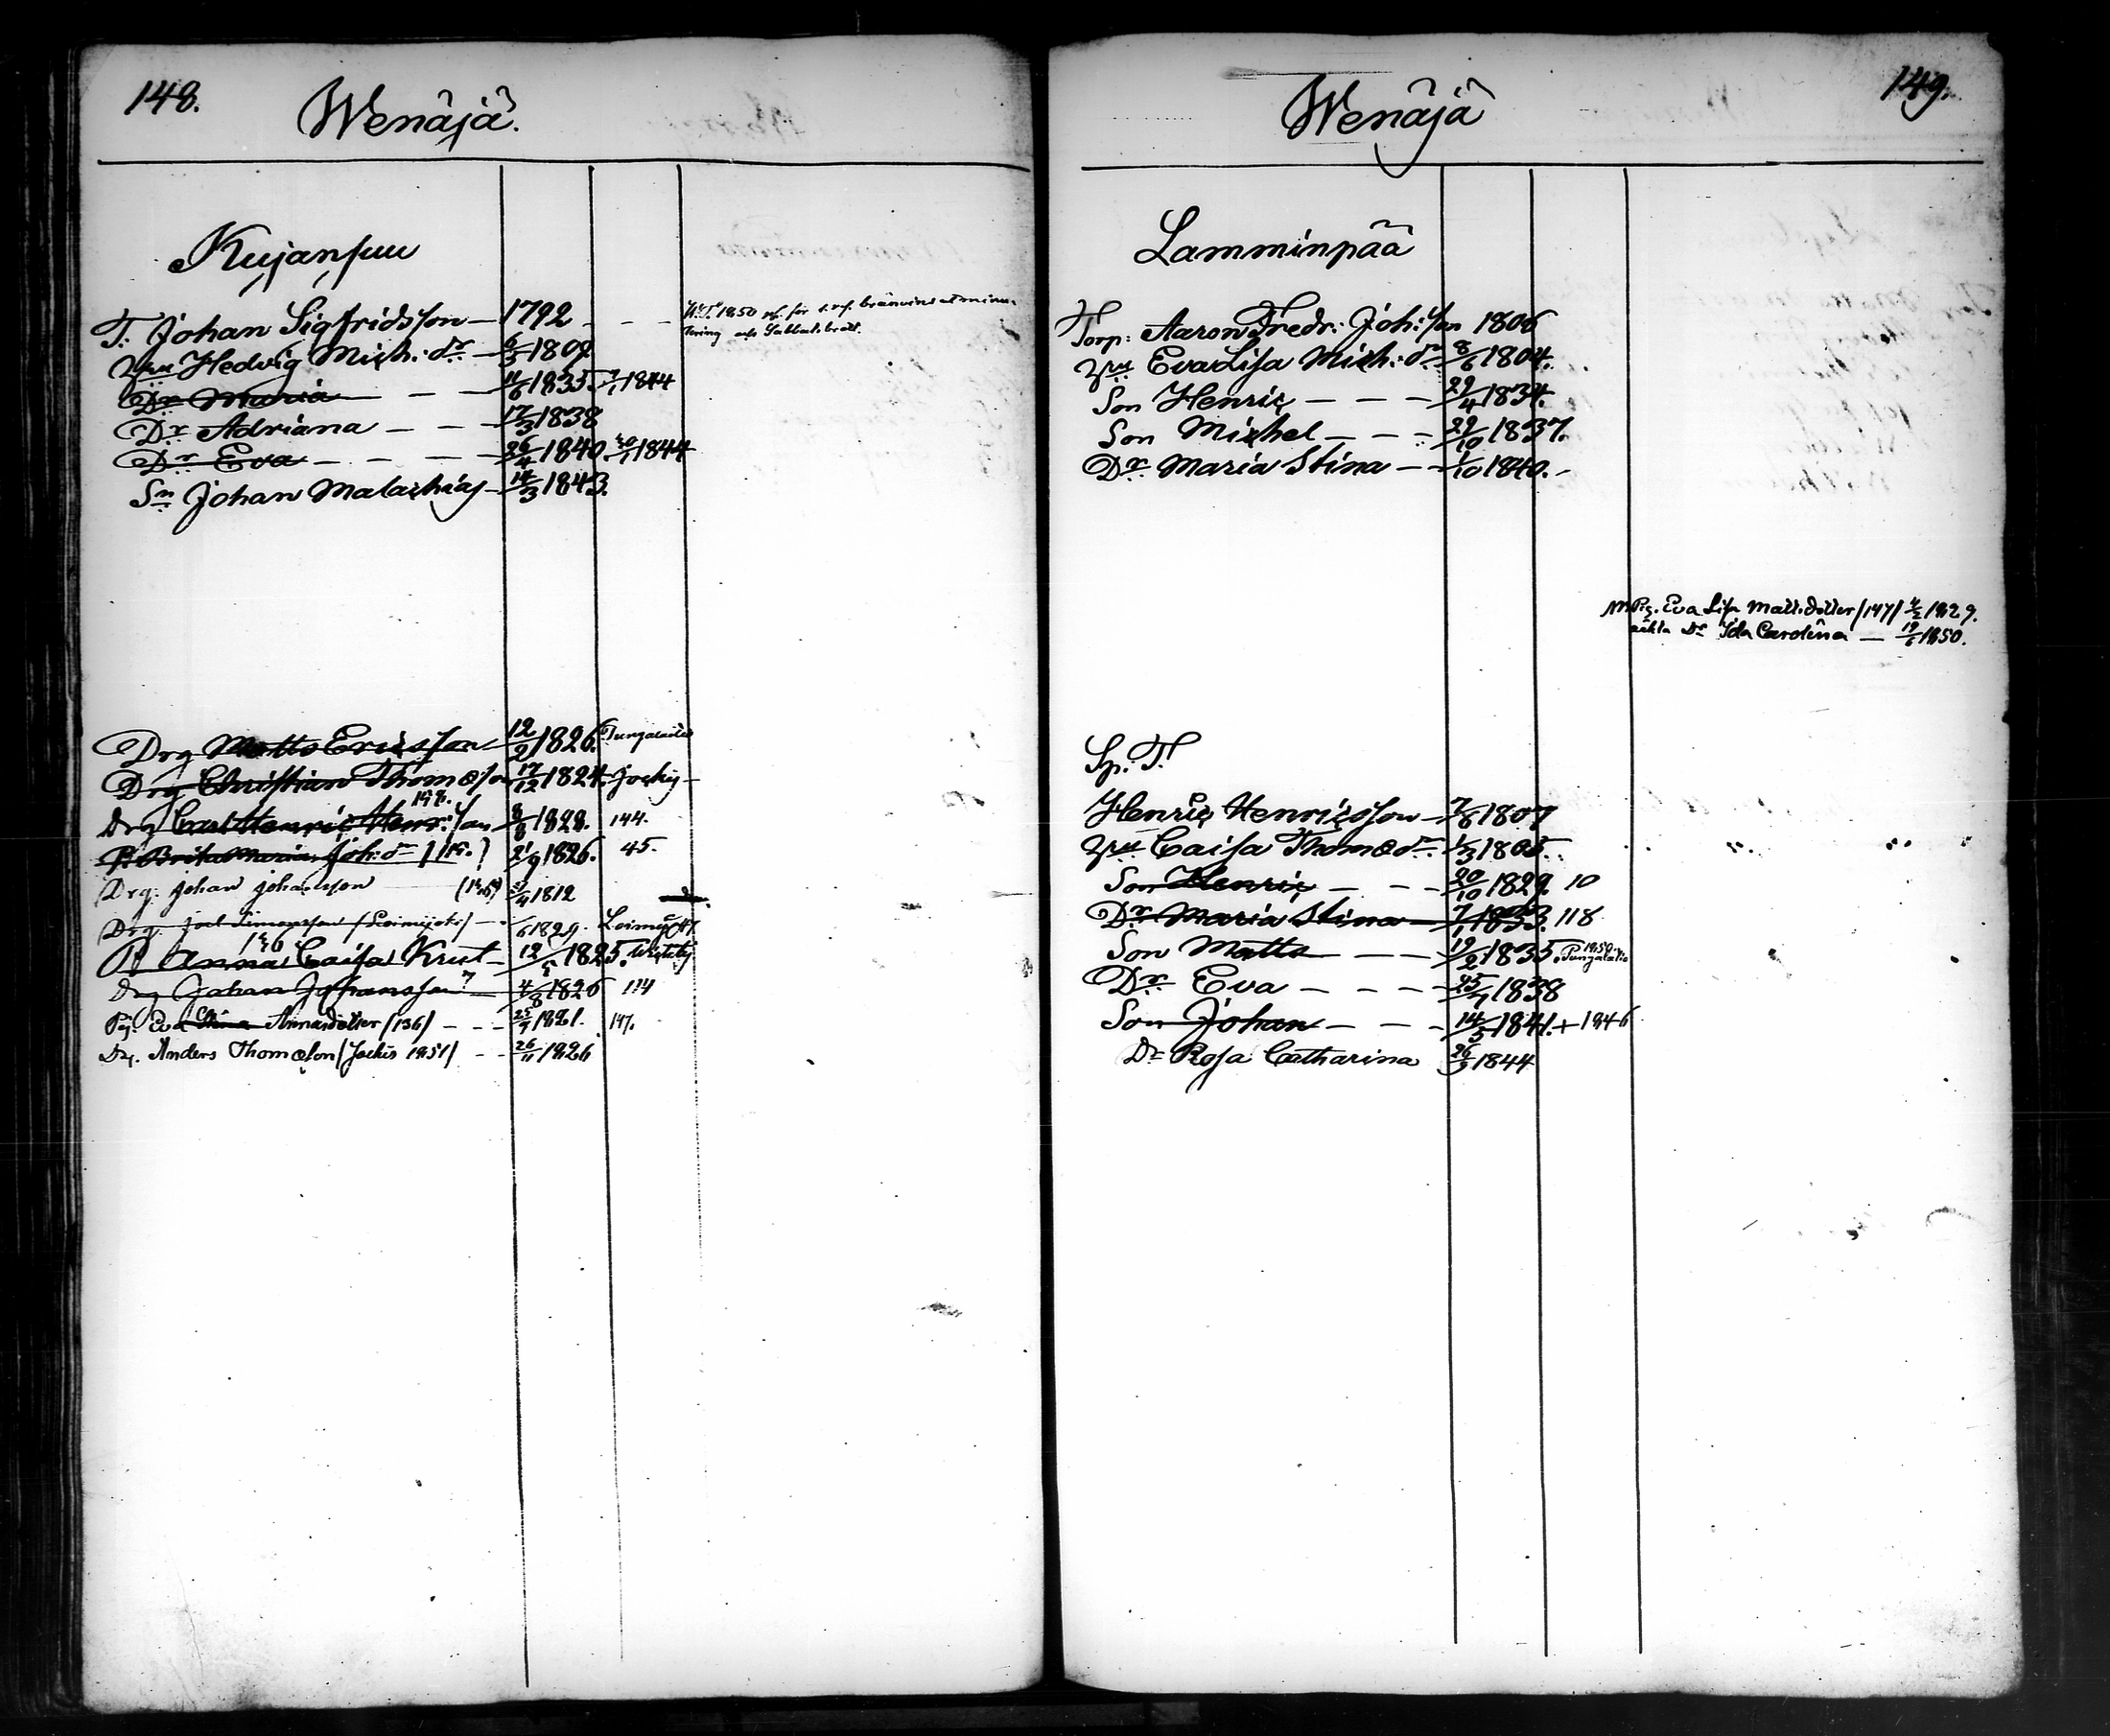 148.
Wenäjä.
Kujansuu
T. Johan Sigfridsson — 1792 — — W.T. 1850 för bränvins utminu-
tering och Sabbatsbrått.
Hu Hedvig Mich: dr — 6/3 1809
Dr Maria — — 11/6 1835. 7/1 1844
Dr Adriana — — 17/3 1838
Dr Eva — — — 26/4 1840. 30/1 1844
Sn Johan Malachias — 14/3 1843.
Drg Matts Ericsson 12/9 1826.
Drg Christian Thomæson 17/12 1824. Jockis
198.
Drg Carl Henric Henr: son 8/8 1828. 144.
P. Brita Maria Joh: dr 21/9 1826. 45.
Drg. Johan Johansson 1812
Drg. Joel Simonsson /Loimijoki/ — /6 1829. Loimijoki
136
P. Anna Caisa Krut — 12/5 1825.
Drg Johan Johansson 4/8 1826 114
Pig. Eva Stina Annasdotter /136/ — — 25/7 1821. 147.
Dr. Anders Thomæson /Jockis 1851/ — — 26/11 1826
149.
Wenäjä
Lamminpää
Torp: Aaron Fredr: Joh: son 1806
Hu Eva Lisa Mich: dr 8/6 1804.
Son Henric — — — 29/4 1834.
Son Michel — — — 29/10 1837.
Dr Maria Stina — 1/10 1840. —
Pig. Eva Lisa Matts dotter /147/ 4/2 1829.
oäkta Dr Ida Carolina — 19/6 1850.
Sp. T.
Henric Henricsson — 7/8 1807
Hu Caisa Thomæ dr. 1/3 1805.
Son Henric — — — 20/10 1829. 10
Dr Maria Stina — 7/1 1833. 118
Son Matts — — 19/2 1835. 1850 Pungalaitio
Dr Eva — — — 25/7 1838
Son Johan — — — 14/5 1841. + 1846
Dr Rosa Catharina 26/9 1844